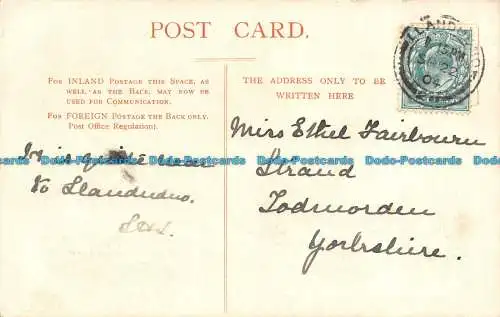 POST CARD.
FOR INLAND POSTAGE THIS SPACE, AS
WELL, AS THE BACK, MAY NOW BE
USED FOR COMMUNICATION.
FOR FOREIGN POSTAGE THE BACK ONLY.
Post Office Regulation).
THE ADDRESS ONLY TO BE
WRITTEN HERE
LLAND
04
is quite near
to Llandudno.
Miss Ethel Fairbourn
Strand
Todmorden
Yorkshire.
Dodo-Postcards Dodo-Postcards Dodo-Postcards Dodo-Postcards Dodo-Postcards